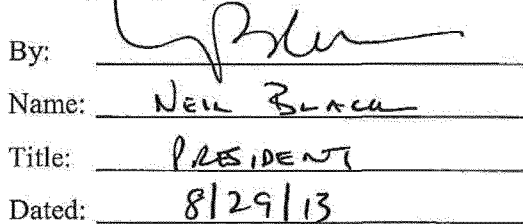 By:
Name: NEIL BLACK
Title: PRESIDENT
Dated: 8/29/13